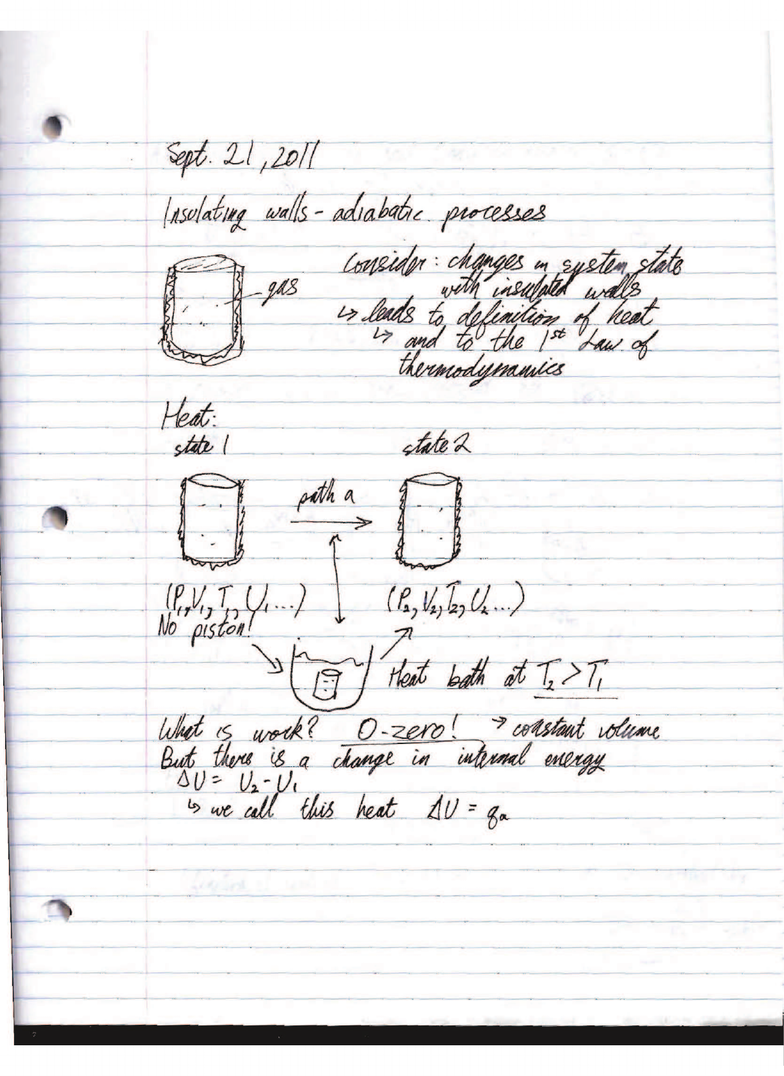 Sept. 21, 2011
Insulating walls - adiabatic processes
gas
consider: changes in system state
with insulated walls
↳ leads to definition of heat
↳ and to the 1st Law of
thermodynamics
Heat:
state 1
state 2
path a
(P₁, V₁, T₁, U₁...)
(P₂, V₂, T₂, U₂...)
No piston!
Heat bath at T₂ > T₁
What is work? 0-zero! → constant volume
But there is a change in internal energy
ΔU = U₂ - U₁
↳ we call this heat ΔU = qₐ